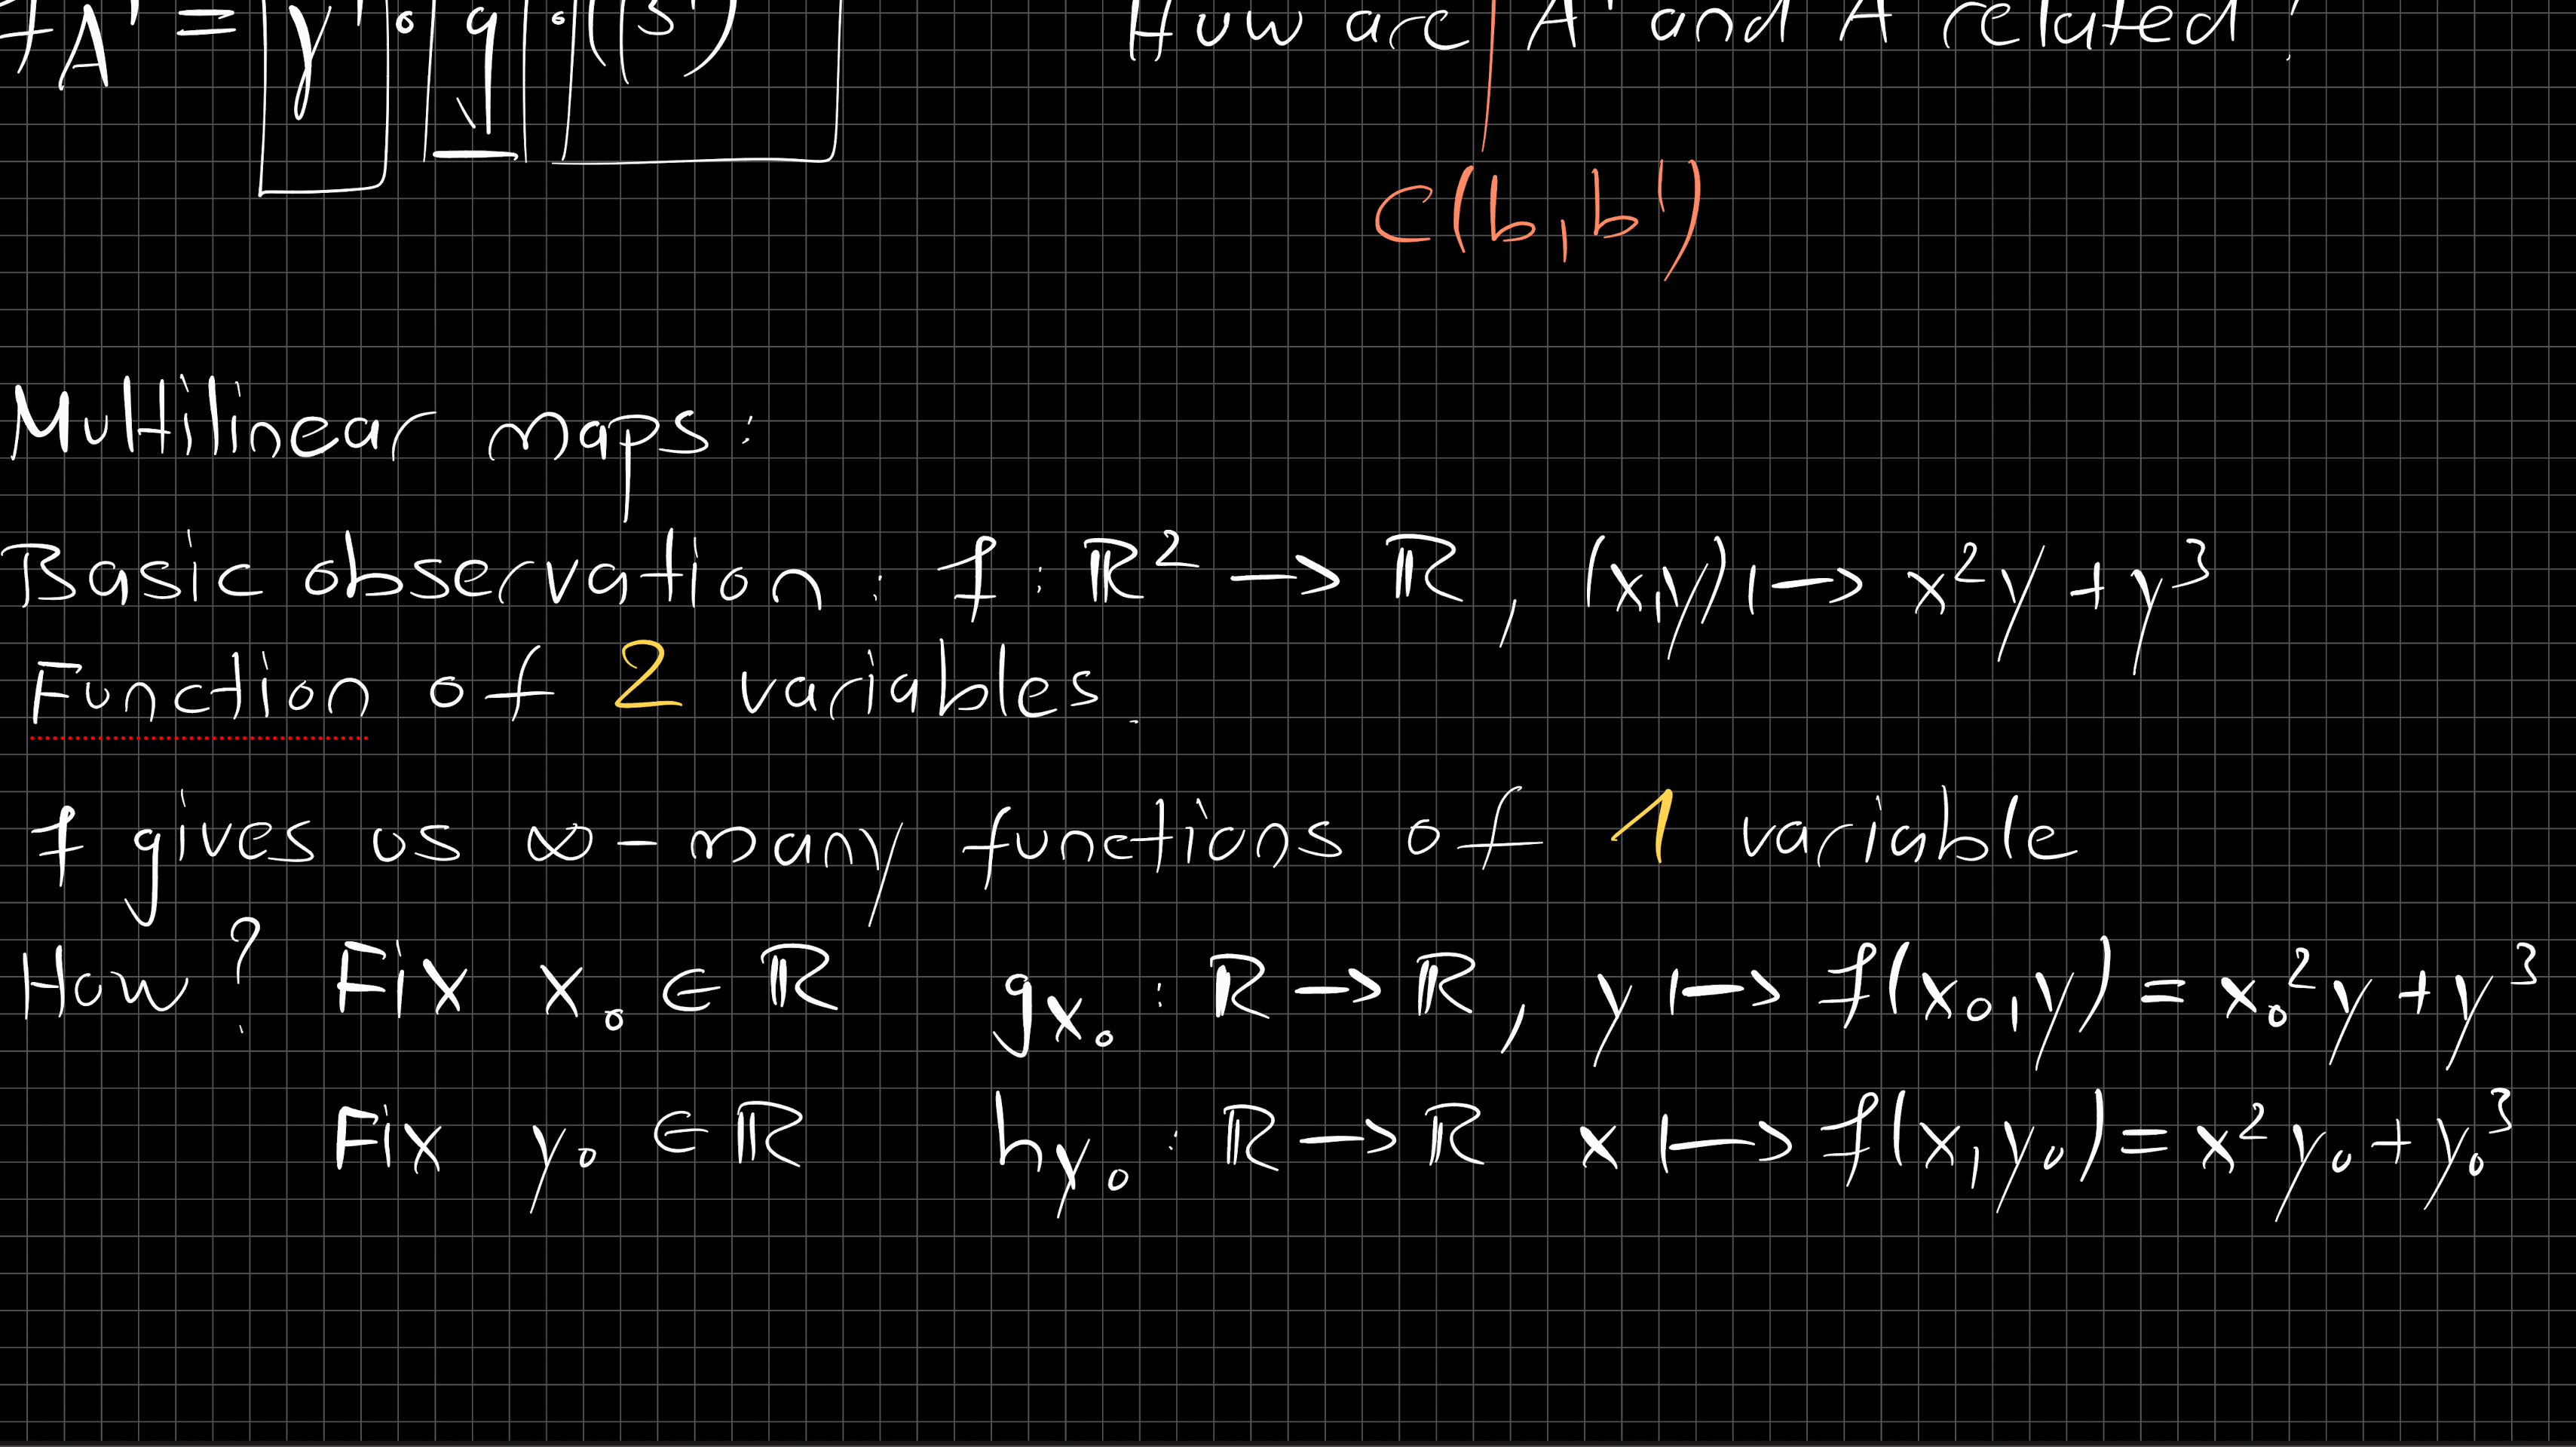 f_A' = γ' ∘ φ ∘ (β')
How are A' and A related?
C(b,b')
Multilinear maps:
Basic observation: f: ℝ² → ℝ, (x,y) ↦ x²y + y³
Function of 2 variables.
f gives us ∞-many functions of 1 variable
How? Fix x₀ ∈ ℝ g_x₀ : ℝ → ℝ, y ↦ f(x₀,y) = x₀²y + y³
Fix y₀ ∈ ℝ h_y₀ : ℝ → ℝ x ↦ f(x,y₀) = x²y₀ + y₀³